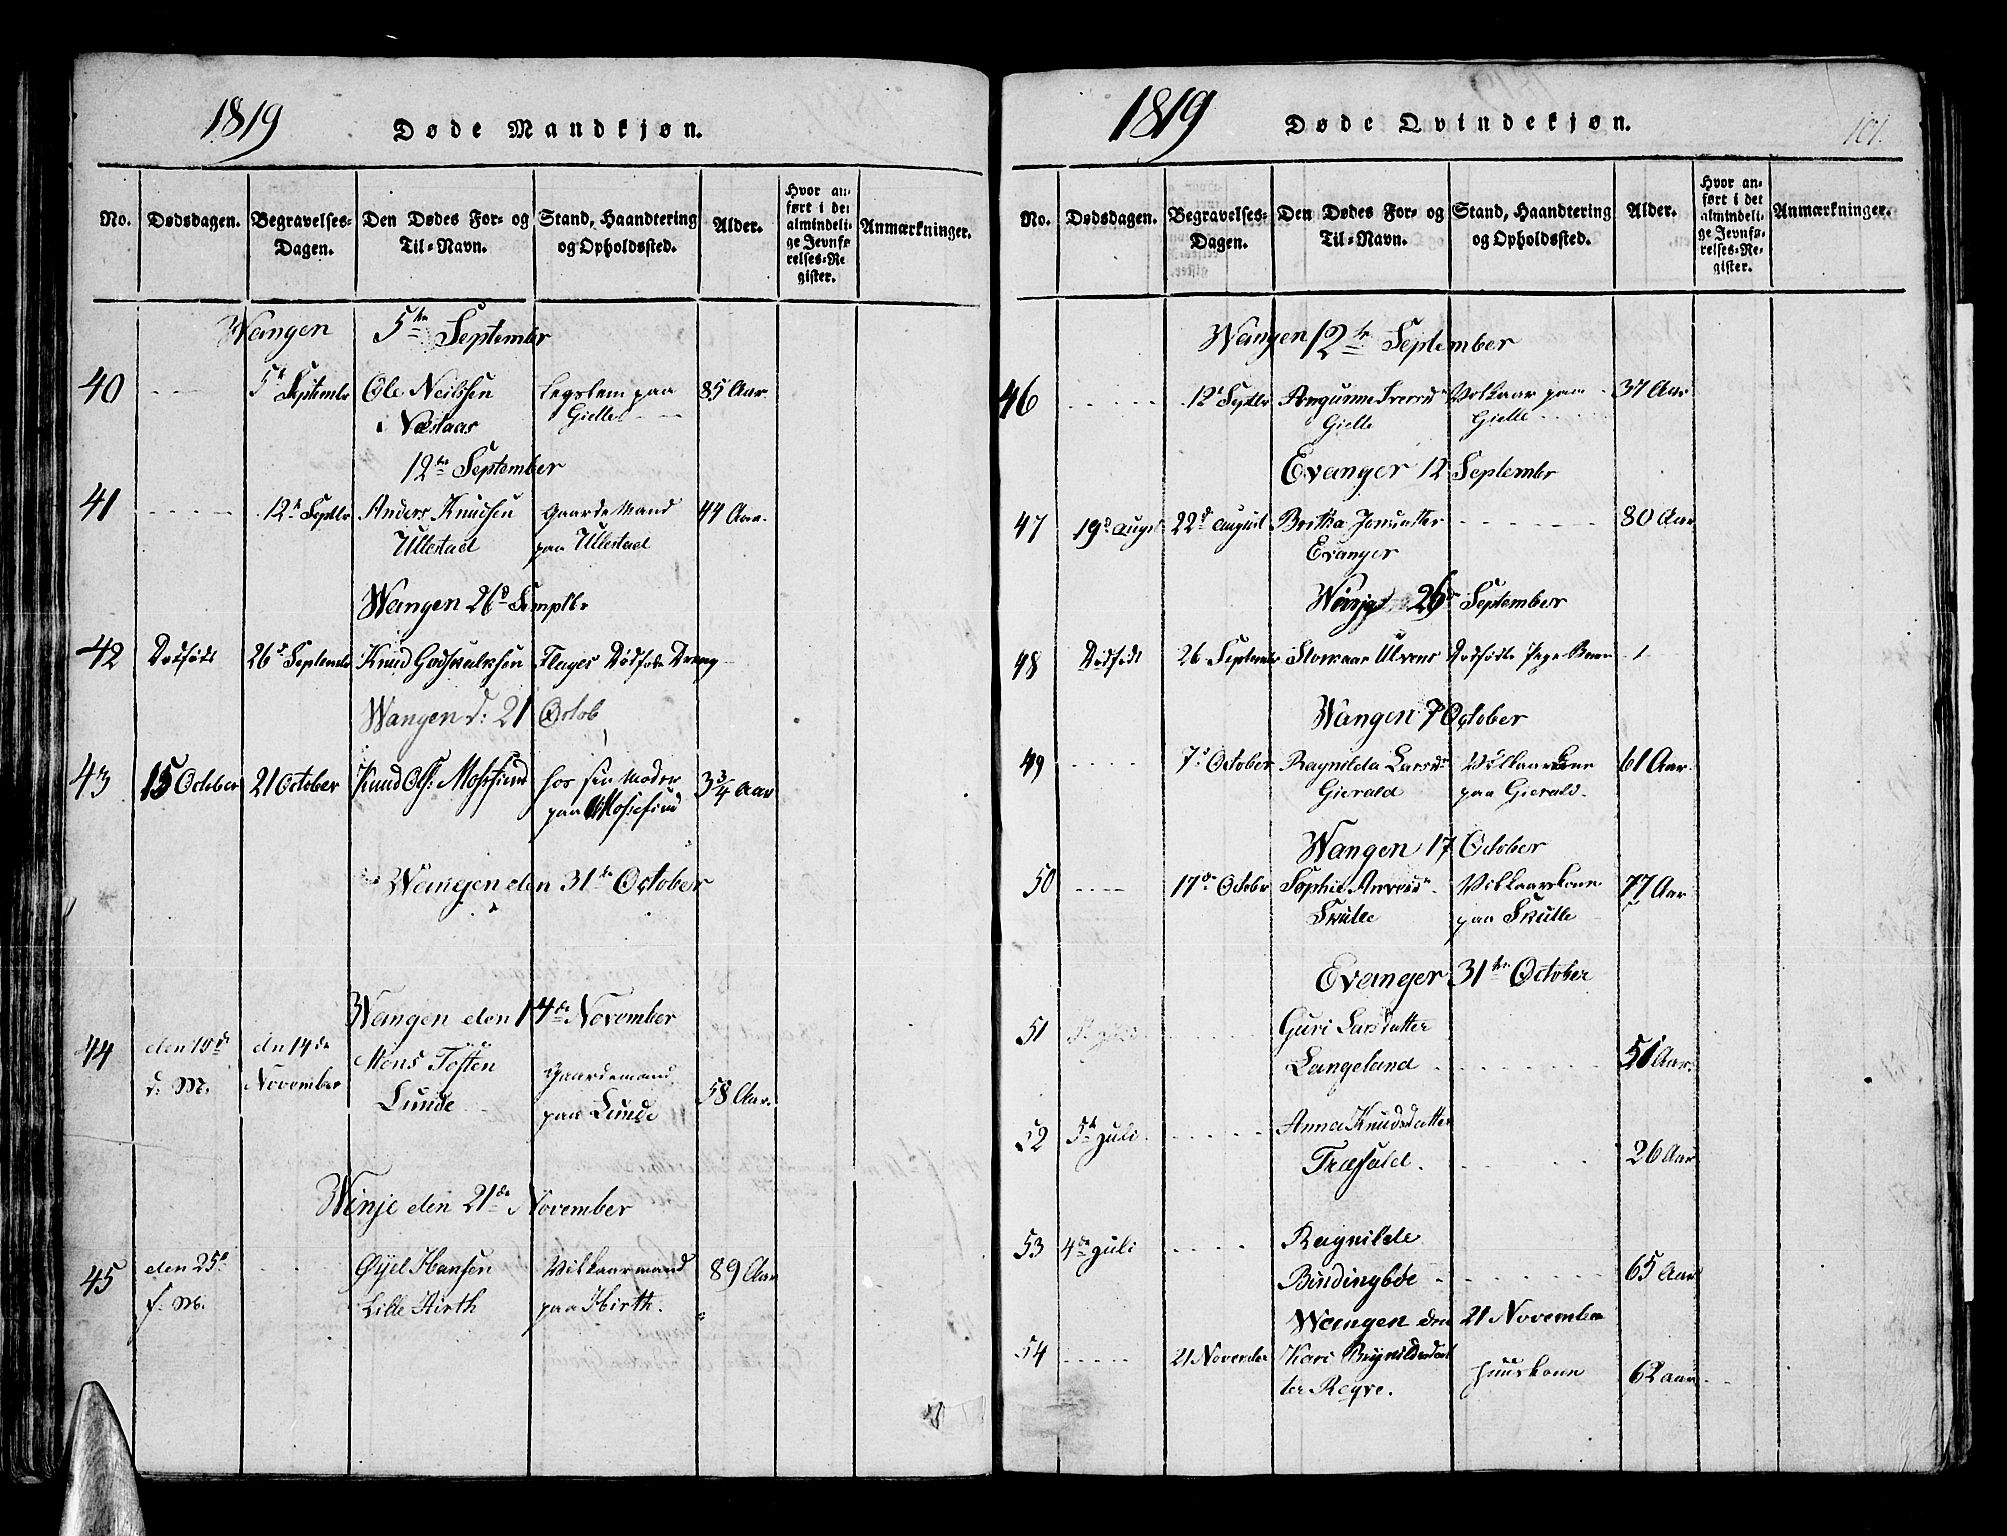 1819
Døde Mandkjøn.
No. Dødsdagen. Begravelses-Dagen. Den Dødes For- og Til-Navn. Stand, Haandtering og Opholdssted. Alder. Hvor anført i det almindelige Jevnførelses-Register. Anmærkninger.
Wangen 5te September
40 - - - 5t Septembr Ole Neilssen Legslem paa 85 Aar
Næstaas Gielle
12te September
41 - - - 12t Septbr Anders Knudsen Gaardemand 44 Aar.
Ullestad paa Ullestad
Wangen 26d
42 Dødfødt 26d Septembr Knud Godskalksen Flages Dødfødte Dreng
Wangen d: 21 Octob
43 15 October 21 October Knud Ols: hos sin Moder 3 3/4 Aar
paa
Wangen den 31te October
Wangen den 14de November
44 den 10de den 14de Mons Gaardemand 58 Aar.
d: M. November Lunde paa Lunde
Winje den 21de November
45 den 25d - - Hansen Vilkaarmand 89 Aar
f. M. Lille Hirth paa Hirth.
1819
Døde Qvindekjøn.
101.
No. Dødsdagen. Begravelses-Dagen. Den Dødes For- og Til-Navn. Stand, Haandtering og Opholdssted. Alder. Hvor anført i det almindelige Jevnførelses-Register. Anmærkninger.
Wangen 12te September
46 - - - 12t Septbr Vilkaar paa 37 Aar
Gielle Gielle
Evanger 12 Septembr
47 19d Augst 22d August Britha Jonsdatter - - - 80 Aar
Evanger
26de September
48 Dødfødt 26 Septembr Ulvens Dødfødte Pige Barn 1
Wangen 7 October
49 - - - 7d October Ragnilda Larsd: Vilkaarskone 61 Aar.
Gierald paa Gierald.
Wangen 17 October
50 - - - 17de October Sophie Vilkaarskone 77 Aar
Skulle paa Skulle
Evanger 31te October
51 - - - Guri Larsdatter
Langeland - - - 51 Aar.
52 5t Juli - - - Anna Knudsdatter
- - - 26 Aar
53 4de Juli - - - Ragnilde
Bindingbøe - - - 65 Aar
Wangen den 21 November
54 - - - 21 November Kari Brynildsdat
ter Rogve. Huuskone 62 aar